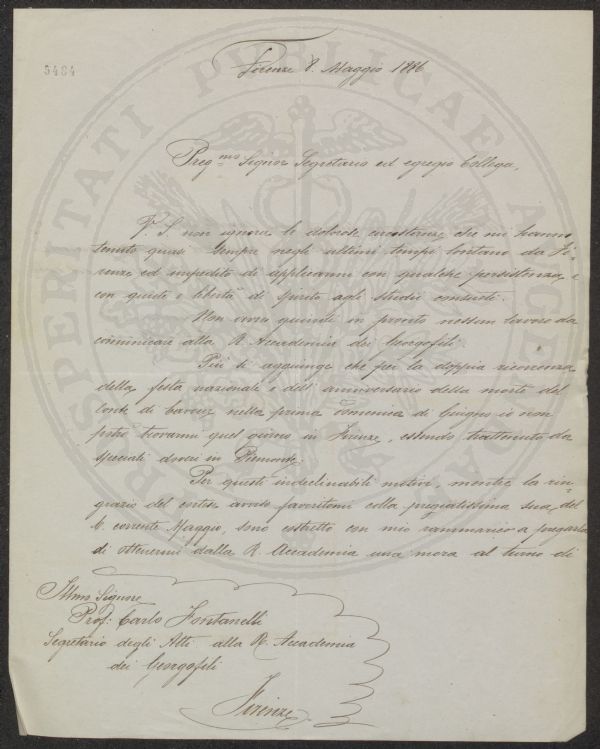 5484
Firenze 8. Maggio 1886
Preg.mo Signor Segretario ed egregio Collega,
V. S. non ignora le dolorose circostanze che mi hanno
tenuto quasi sempre negli ultimi tempi lontano da Fi-
renze ed impedito di applicarmi con qualche persistenza, e
con quiete e libertà di spirito agli studii consueti.
Non avrei quindi in pronto nessun lavoro da
comunicare alla R. Accademia dei Georgofili.
Più si aggiunge che per la doppia ricorrenza
della festa nazionale e dell'anniversario della morte del
Conte di Cavour nella prima domenica di Giugno io non
potrò trovarmi quel giorno in Firenze, essendo trattenuto da
speciali doveri in Piemonte.
Per questi indeclinabili motivi, mentre la rin-
grazio del cortese avviso favoritomi colla pregiatissima sua del
6 corrente Maggio, sono costretto con mio rammarico a pregarla
di ottenermi dalla R. Accademia una mora al turno di
Illmo Signore
Prof: Carlo Fontanelli
Segretario degli Atti alla R. Accademia
dei Georgofili
Firenze
PROSPERITATI PUBLICAE AUGENDAE